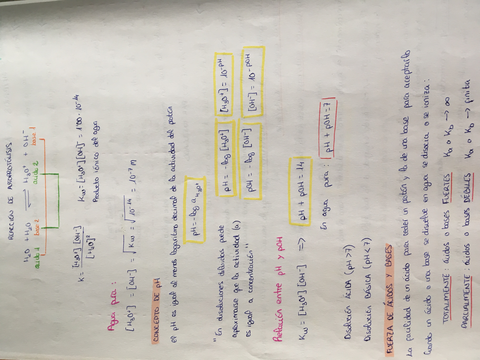 REACCIÓN DE AUTOPROTÓLISIS
H₂O + H₂O ⇌ H₃O⁺ + OH⁻
ácido 1 base 2 ácido 2 base 1
K = [H₃O⁺][OH⁻] / [H₂O]²
Kw = [H₃O⁺][OH⁻] = 1'00·10⁻¹⁴
Producto iónico del agua
Agua pura:
[H₃O⁺] = [OH⁻] = √Kw = √10⁻¹⁴ = 10⁻⁷ M
CONCEPTO DE pH
el pH es igual al menos logaritmo decimal de la actividad del protón
pH = -log a H₃O⁺
"En disoluciones diluidas puede
aproximarse que la actividad (a)
es igual a concentración"
pH = -log [H₃O⁺] [H₃O⁺] = 10⁻ᵖᴴ
pOH = -log [OH⁻] [OH⁻] = 10⁻ᵖᴼᴴ
Relación entre pH y pOH
Kw = [H₃O⁺][OH⁻] ⇒ pH + pOH = 14
En agua pura: pH + pOH = 7
Disolución ÁCIDA (pH>7)
Disolución BÁSICA (pH<7)
FUERZA DE ÁCIDOS Y BASES
La facilidad de un ácido para ceder un protón y la de una base para aceptarlo
Cuando un ácido o una base se disuelve en agua se disocia o se ioniza:
TOTALMENTE: ácidos o bases FUERTES Ka o Kb → ∞
PARCIALMENTE: ácidos o bases DÉBILES Ka o Kb → finita